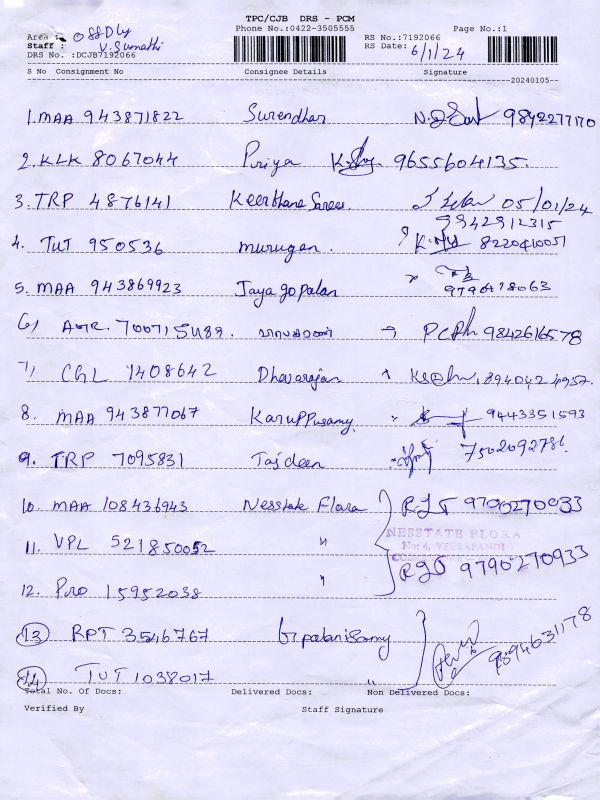 TPC/CJB DRS - PCM
Phone No.:0422-3505555
Page No.:1
Area : OSSDly
RS No.:7192066
Staff : V. Sumathi
RS Date: 6/1/24
DRS No. :DCJB7192066
S No Consignment No Consignee Details Signature
20240105
1. MAA 943871822 Surendhar 9842277170
2. KLK 8067044 Priya 9655604135.
3. TRP 4876141 Keerthana Sarees 05/01/24
9942912315
4. TUT 950536 murugan. 8220410051
5. MAA 943869923 Jayagopalan 9790418063
6) AMR. 700715489. 9842616578
7) CGL 1408642 Dhavarajan
8. MAA 943877067 Karuppusamy 9443351593
9. TRP 7095831 Tajdeen 7502092786
10. MAA 108436943 Nesstate Flora RJT 9790270033
NESSTATE FLORA
No: 4, VEERAPANDI
11. VPL 521850052 "
RJT 9790270933
12. PRO 15952038 "
13 RPT 3546767 palanisamy 9894631178
14 TUT 1038017 "
Total No. Of Docs: Delivered Docs: Non Delivered Docs:
Verified By Staff Signature